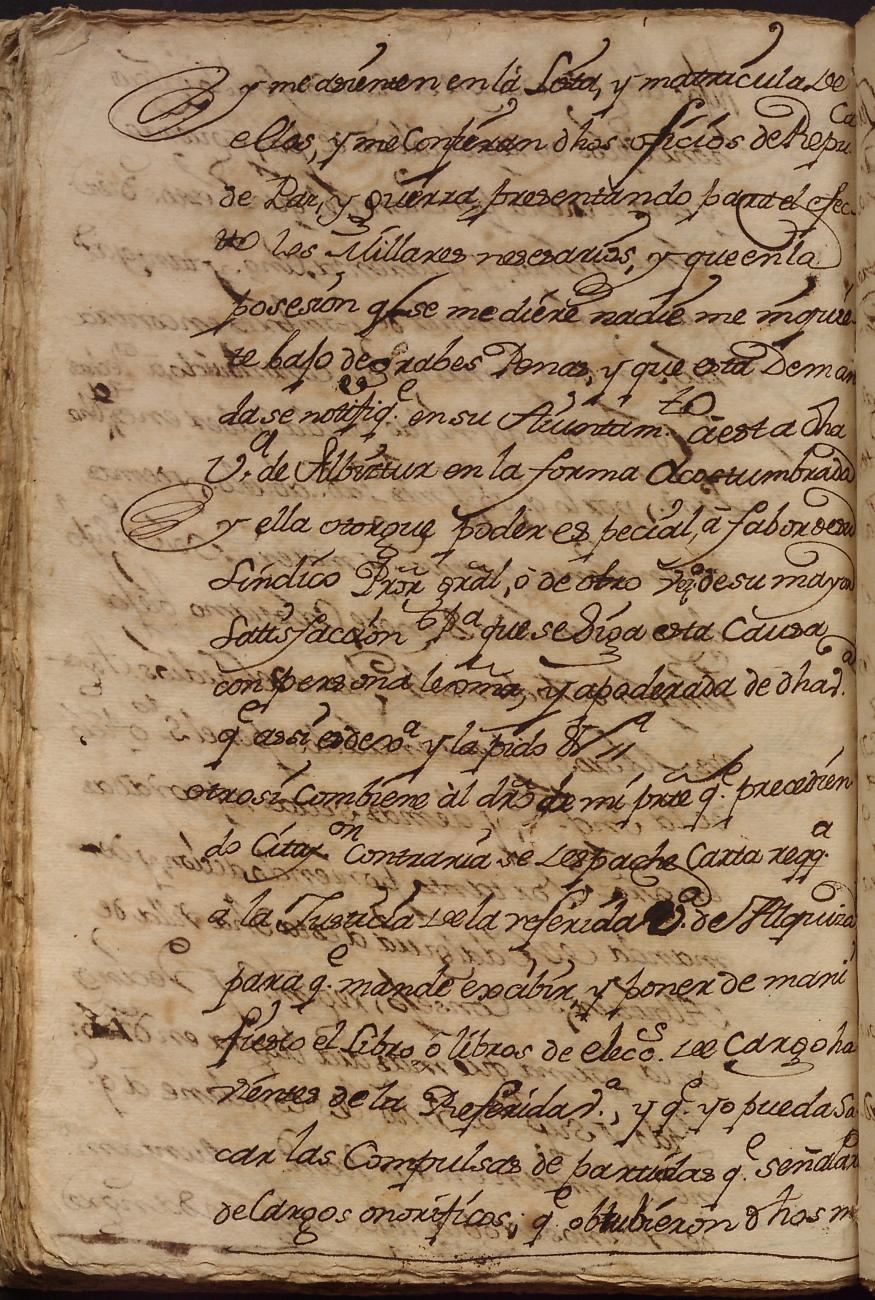 y me asienten en la Lista, y matricula de
ellos, y me Confieran dhos oficios de Repuca
de Paz, y guerra, presentando para el efec-
to los Millares nesesarios, y que en la
posesion q.e se me diere nadie me inquie-
te bajo de grabes Penas, y que esta Deman
da se notifiq.e en su Aiuntam.to à esta dha
V.a de Albiztur en la forma Acostumbrada
y ella otorgue poder especial, à fabor de su
Sindico Pror gral, ò de otro vez.o de su mayor
Satisfaccion p.a que se siga esta Causa
con persona lexma, y apoderada de dha V.a
q.e assi es de xa y la pido V.a
otrosi Combiene àl dro de mi prte q.e precedien
do Citaz.on Contraria se despache Carta reqq.a
à la Justicia de la referida V.a de Alquiza
para q.e mande exibir, y poner de mani
fiesto el Libro ò libros de elecc.s de Cargo ha
vientes de la Referida V.a, y q.e yo pueda Sa
car las Compulsas de partidas q.e señalare
de Cargos onorificos, q.e obtubieron dhos m